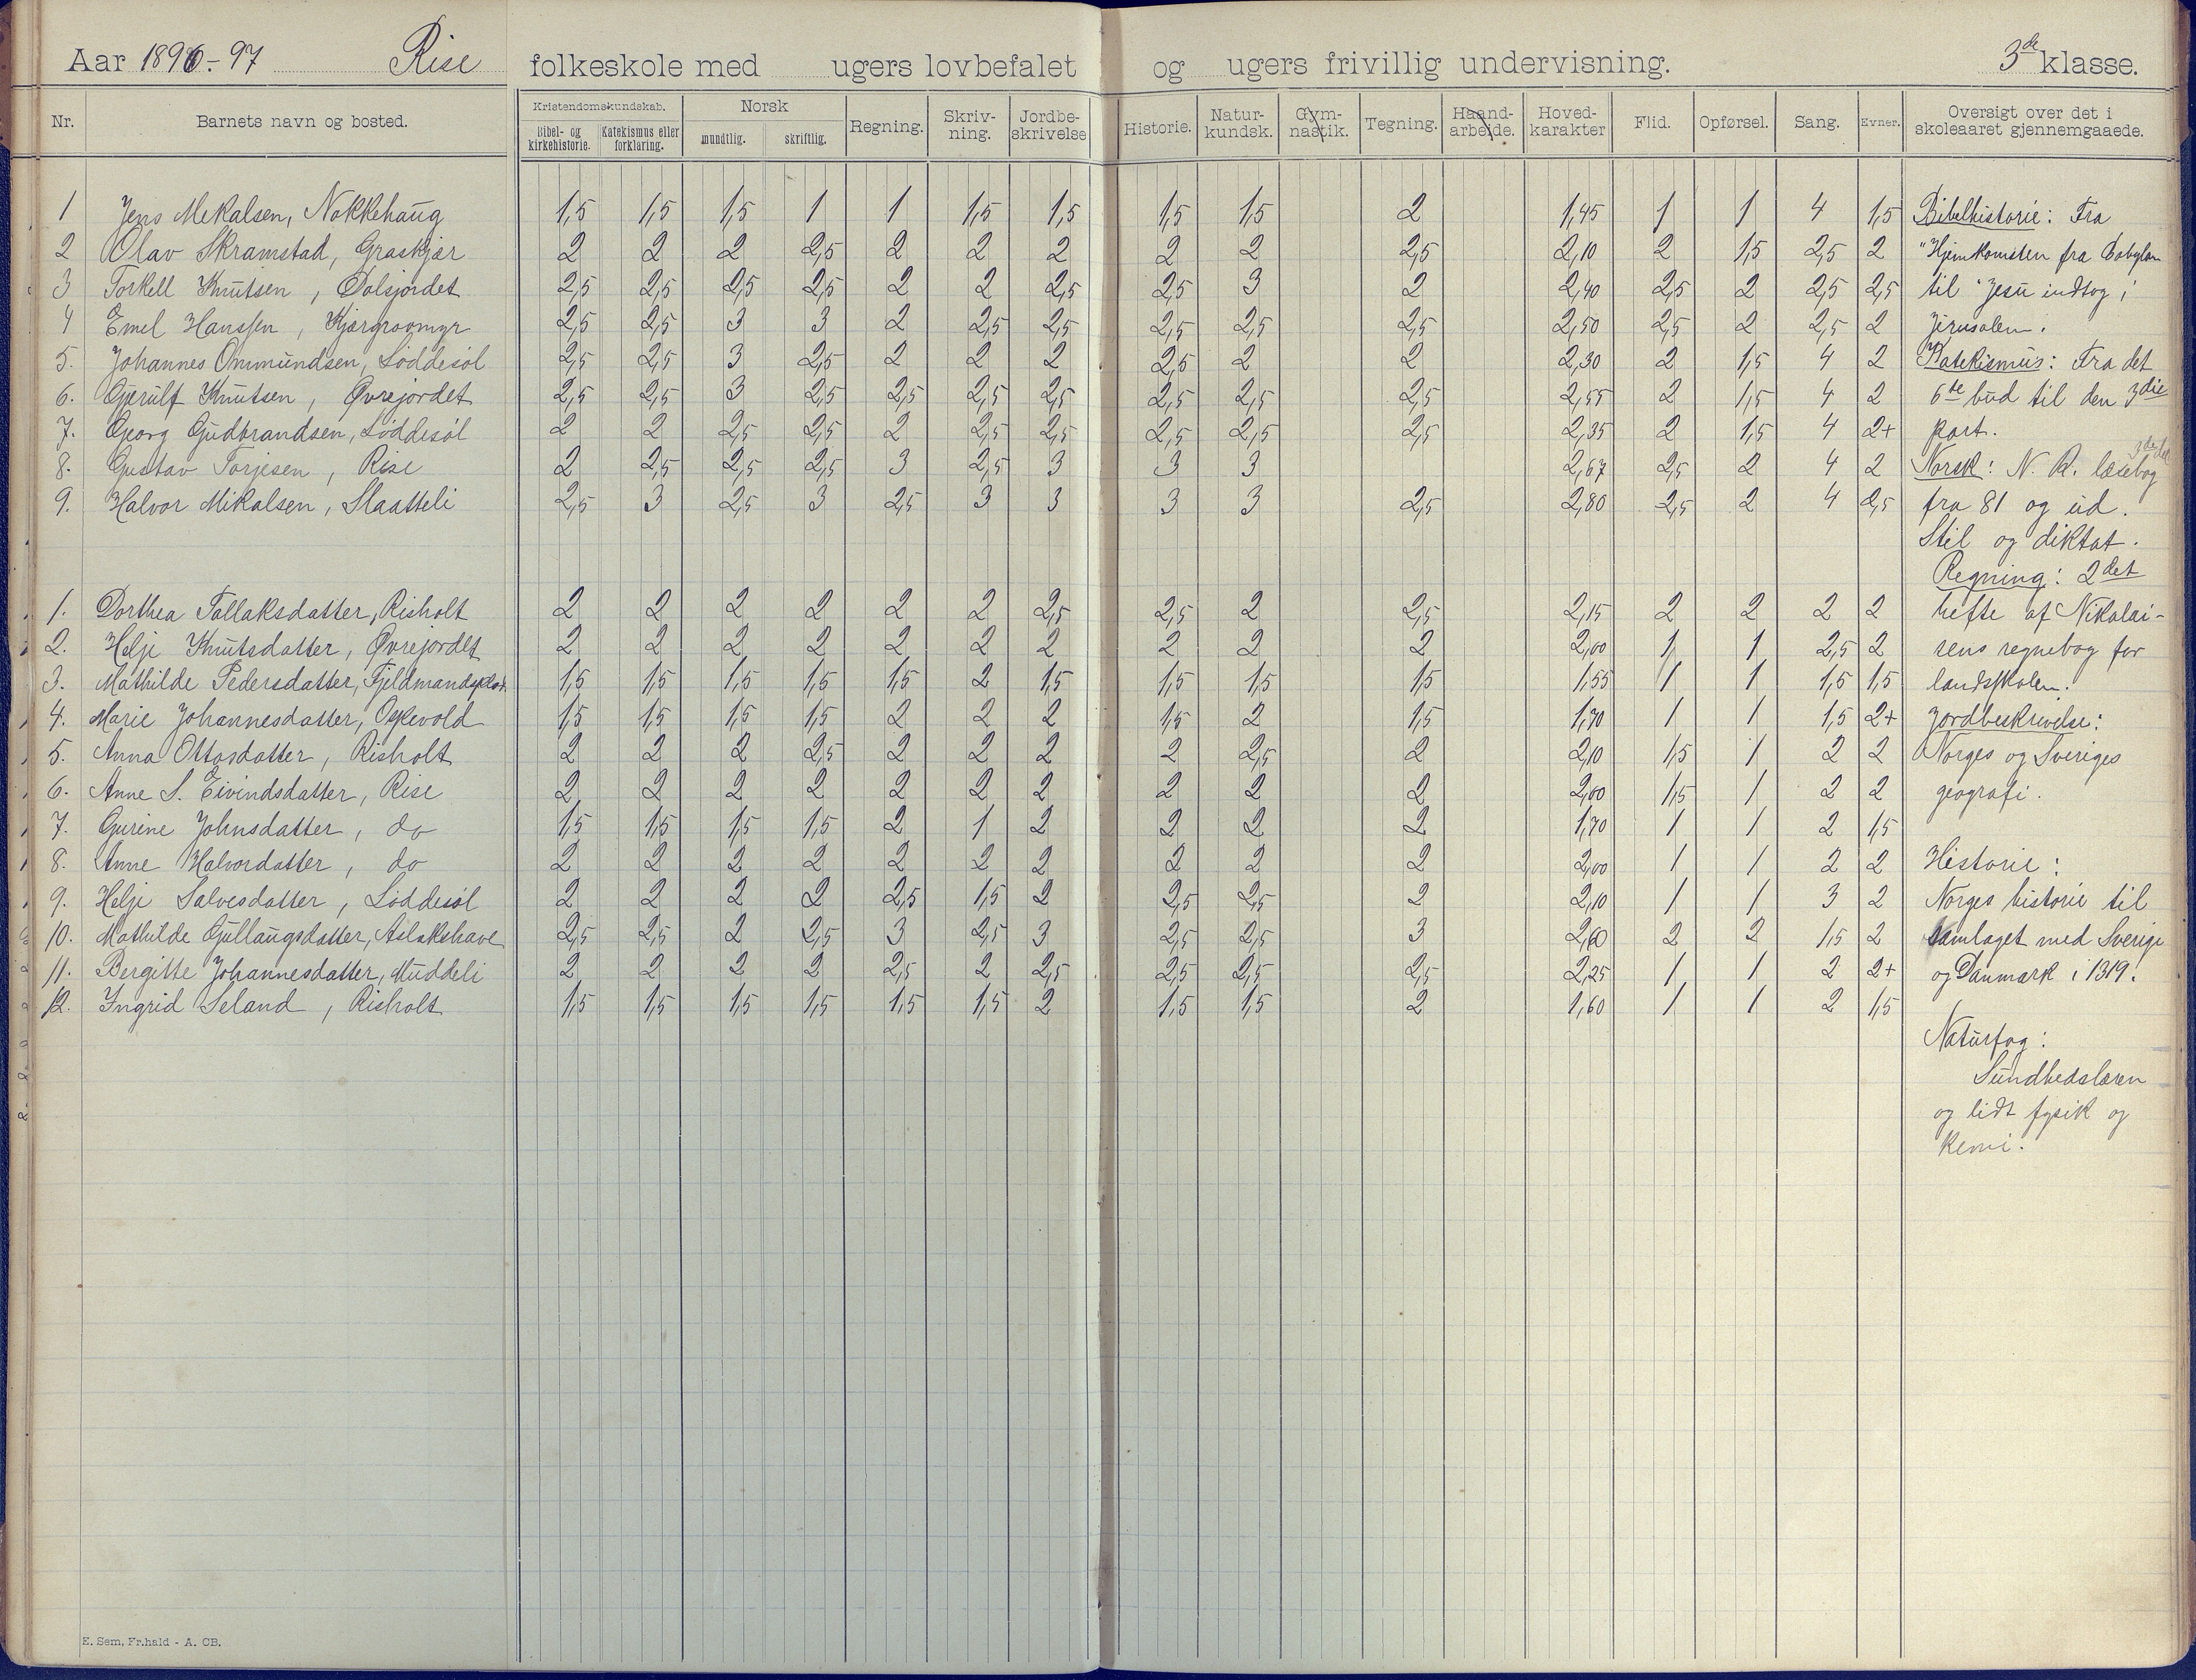 Aar 1896-97 Rise folkeskole med ugers lovbefalet og ugers frivillig undervisning. 3de klasse.
Nr. Barnets navn og bosted. Kristendomskundskab. Bibel- og kirkehistorie. Katekismus eller forklaring. Norsk mundtlig. skriftlig. Regning. Skriv-ning. Jordbe-skrivelse Historie. Natur-kundsk. Gym-nastik. Tegning. Haand-arbeide. Hoved-karakter Flid. Opførsel. Sang. Evner. Oversigt over det i skoleaaret gjennemgaaede.
1 Jens Mekalsen, Nakkehaug 1,5 1,5 1,5 1 1 1,5 1,5 1,5 1,5 2 1,45 1 1 4 1,5 Bibelhistorie: Fra
2 Olav Skramstad, Graskjær 2 2 2 2,5 2 2 2 2 2 2,5 2,10 2 1,5 2,5 2 "Hjemkomsten fra Babylon
3 Torkell Knutsen, Dalsjordet 2,5 2,5 2,5 2,5 2 2 2,5 2,5 3 2 2,40 2,5 2 2,5 2,5 til "Jesu indtog i
4 Emel Hanssen, Kjærgroomyr 2,5 2,5 3 3 2 2,5 2,5 2,5 2,5 2,5 2,50 2,5 2 2,5 2 Jerusalem.
5. Johannes Ommundsen, Løddesøl 2,5 2,5 3 2,5 2 2 2 2,5 2 2 2,30 2 1,5 4 2 Katekismus: Fra det
6. Gjerulf Knutsen, Øvrejordet 2,5 2,5 3 2,5 2,5 2,5 2,5 2,5 2,5 2,5 2,55 2 1,5 4 2 6te bud til den 3die
7. Georg Gudbrandsen, Løddesøl 2 2 2,5 2,5 2 2,5 2,5 2,5 2,5 2,5 2,35 2 1,5 4 2+ part.
8. Gustav Torjesen, Rise 2 2,5 2,5 2,5 3 2,5 3 3 3 2,67 2,5 2 4 2 Norsk: N. R. læsebog 3de del
9. Halvor Mikalsen, Slaatteli 2,5 3 2,5 3 2,5 3 3 3 3 2,5 2,80 2,5 2 4 2,5 fra 81 og ud.
Stil og diktat.
Regning: 2det
1. Dorthea Tallaksdatter, Risholt 2 2 2 2 2 2 2,5 2,5 2 2,5 2,15 2 2 2 2 hefte af Nikolai-
2. Helje Knutsdatter, Øvrejordet 2 2 2 2 2 2 2 2 2 2 2,00 1 1 2,5 2 sens regnebog for
3. Mathilde Pedersdatter, 1,5 1,5 1,5 1,5 1,5 2 1,5 1,5 1,5 1,5 1,55 1 1 1,5 1,5 landsskolen.
4. Marie Johannesdatter, Oskevold 1,5 1,5 1,5 1,5 2 2 2 1,5 2 1,5 1,70 1 1 1,5 2+ Jordbeskrivelse:
5. Anna Ottosdatter, Risholt 2 2 2 2,5 2 2 2 2 2,5 2 2,10 1,5 1 2 2 Norges og Sveriges
6. Anne S. Eivindsdatter, Rise 2 2 2 2 2 2 2 2 2 2 2,00 1,5 1 2 2 geografi.
7. Gurine Johnsdatter, do 1,5 1,5 1,5 1,5 2 1 2 2 2 2 1,70 1 1 2 1,5
8. Anne Halvordatter, do 2 2 2 2 2 2 2 2 2 2 2,00 1 1 2 2 Historie:
9. Helje Salvesdatter, Løddesøl 2 2 2 2 2,5 1,5 2 2,5 2,5 2 2,10 1 1 3 2 Norges historie til
10. Mathilde Gullaugsdatter, Aslakshave 2,5 2,5 2 2,5 3 2,5 3 2,5 2,5 3 2,60 2 2 1,5 2 samlaget med Sverige
11. Bergitte Johannesdatter, Muddeli 2 2 2 2 2,5 2 2,5 2,5 2,5 2,5 2,25 1 1 2 2+ og Danmark i 1319.
12. Ingrid Seland, Risholt 1,5 1,5 1,5 1,5 1,5 1,5 2 1,5 1,5 2 1,60 1 1 2 1,5
Naturfag:
Sundhedslæren
og lidt fysik og
kemi.
E. Sem, Fr.hald - A. CB.